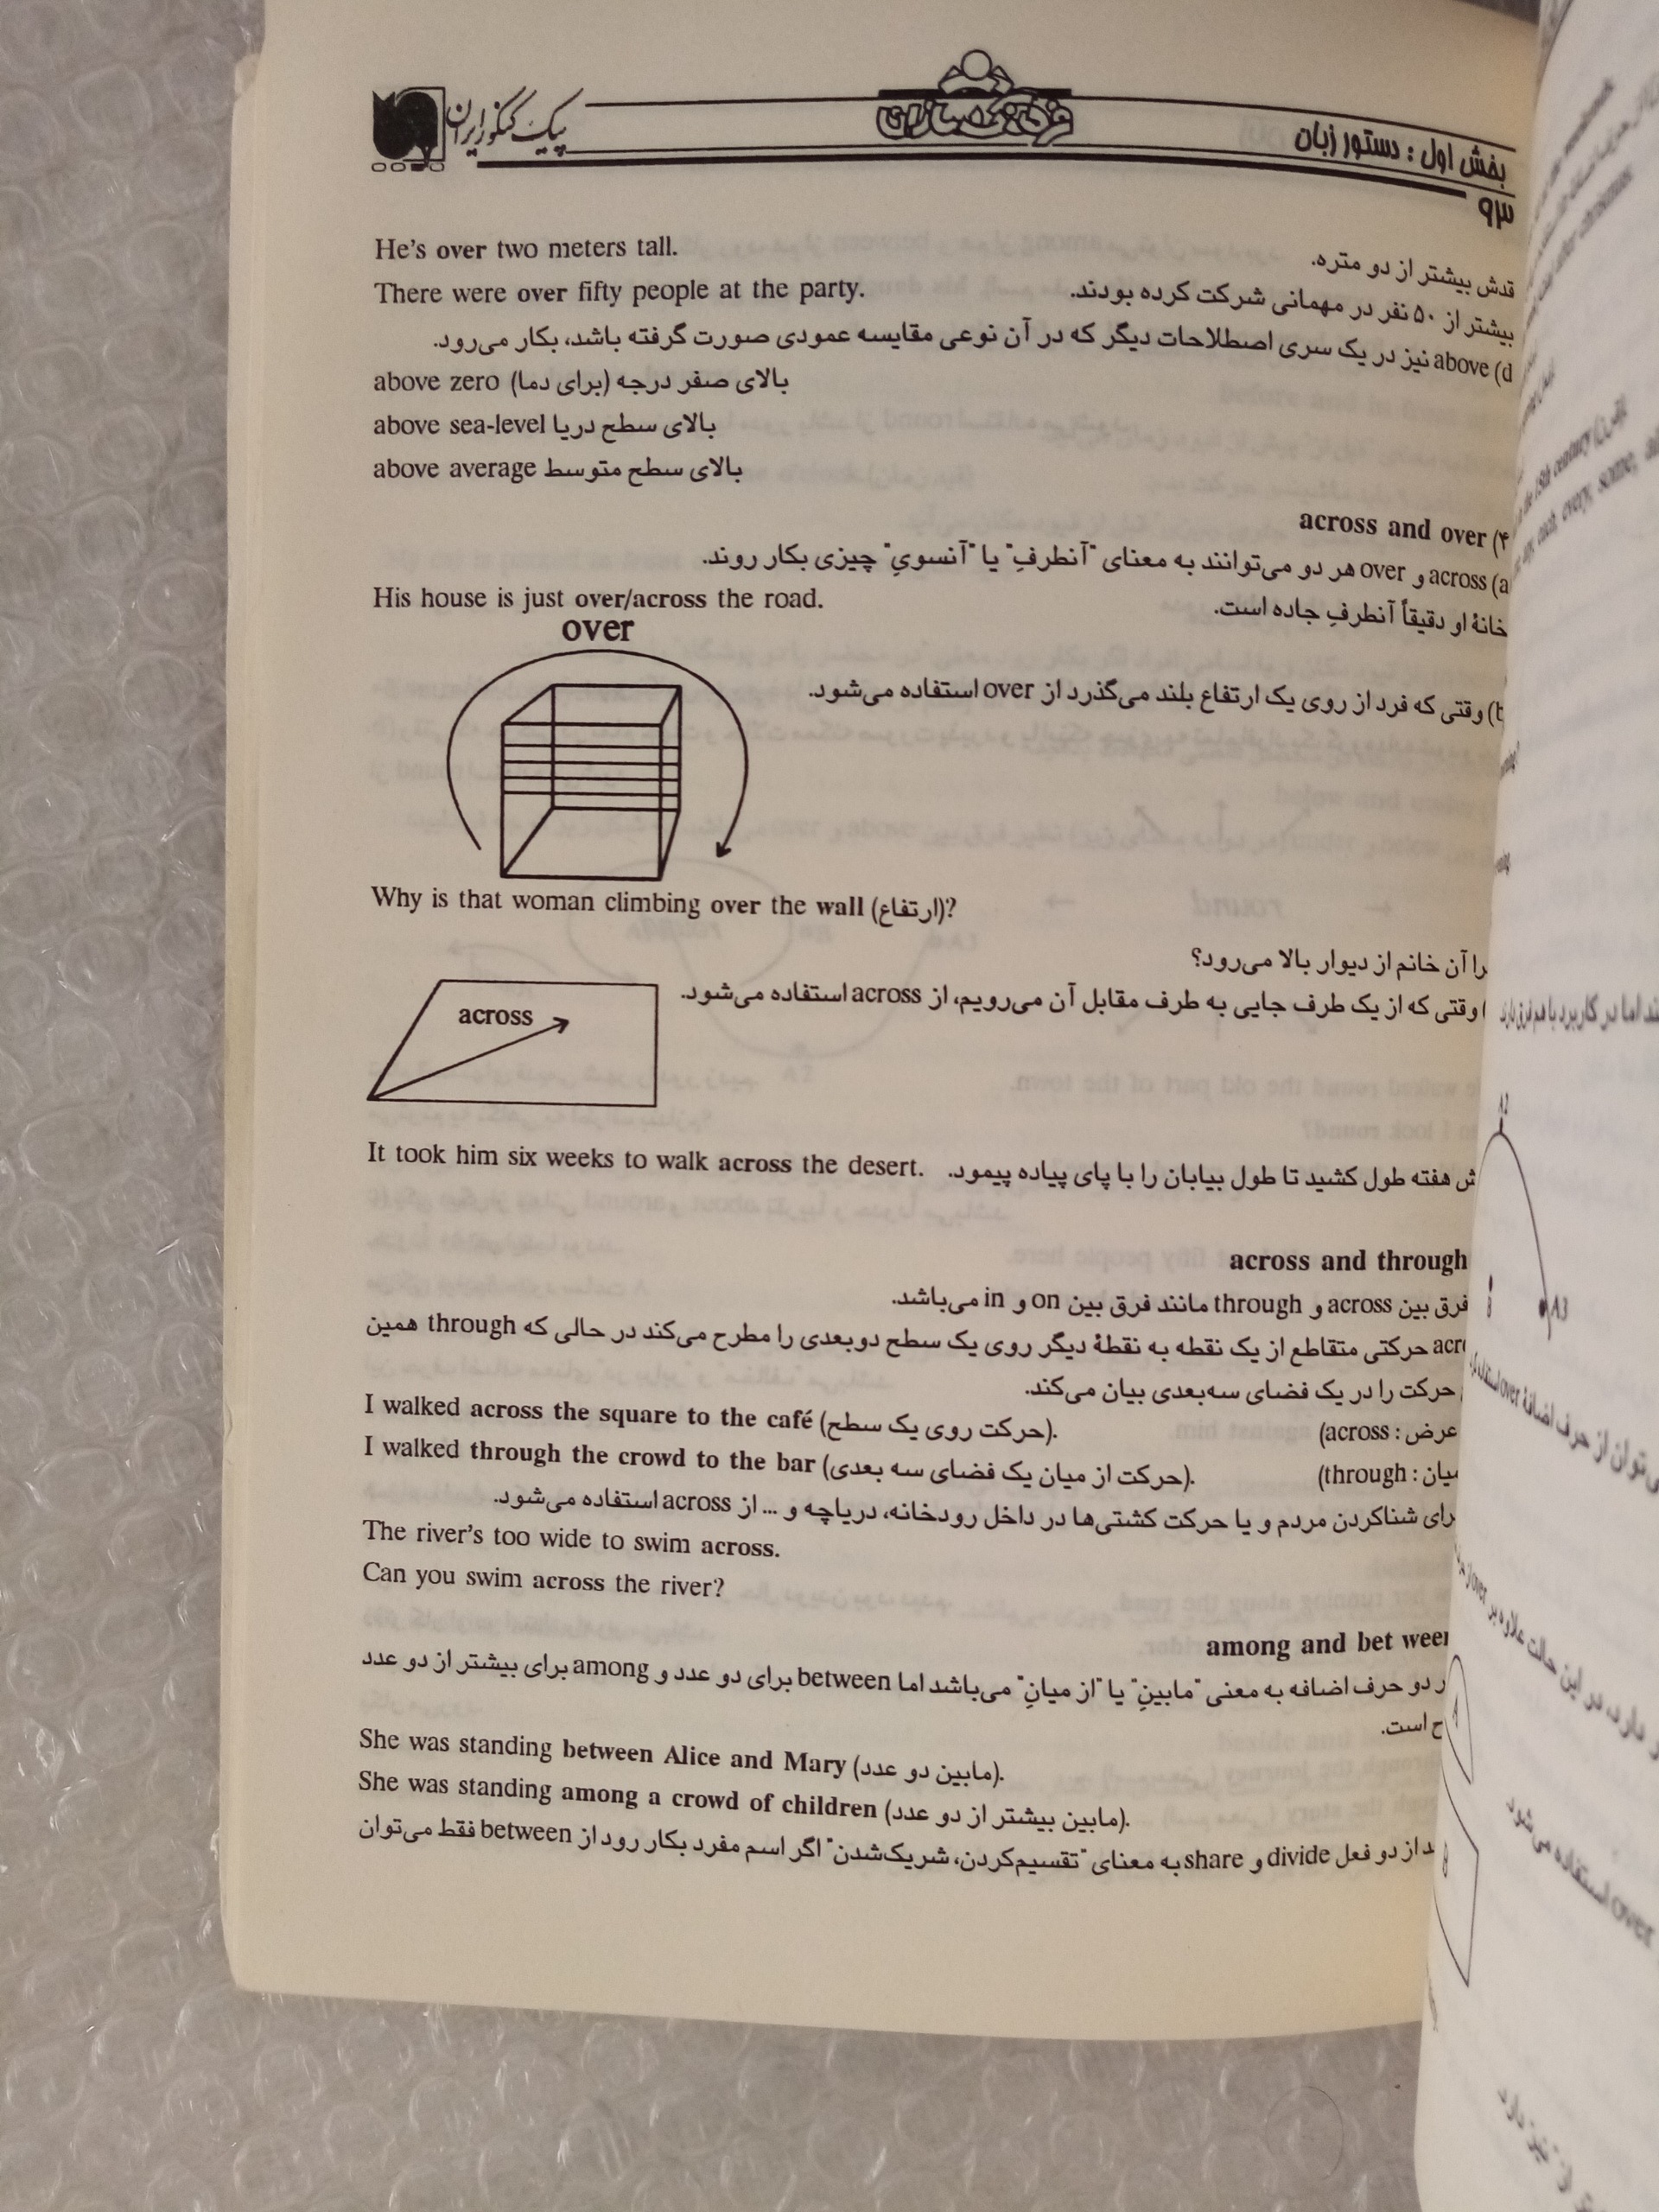 پیک کنکور ایران
بخش اول : دستور زبان
۹۳
He's over two meters tall. قدش بیشتر از دو متره.
There were over fifty people at the party. بیشتر از ۵۰ نفر در مهمانی شرکت کرده بودند.
d) above نیز در یک سری اصطلاحات دیگر که در آن نوعی مقایسه عمودی صورت گرفته باشد، بکار می‌رود.
above zero بالای صفر درجه (برای دما)
above sea-level بالای سطح دریا
above average بالای سطح متوسط
۴) across and over
a) across و over هر دو می‌توانند به معنای "آنطرفِ" یا "آنسویِ" چیزی بکار روند.
His house is just over/across the road. خانهٔ او دقیقاً آنطرفِ جاده است.
over
b) وقتی که فرد از روی یک ارتفاع بلند می‌گذرد از over استفاده می‌شود.
Why is that woman climbing over the wall (ارتفاع)?
آن خانم از دیوار بالا می‌رود؟
وقتی که از یک طرف جایی به طرف مقابل آن می‌رویم، از across استفاده می‌شود.
across
It took him six weeks to walk across the desert. هفته طول کشید تا طول بیابان را با پای پیاده پیمود.
across and through
فرق بین across و through مانند فرق بین on و in می‌باشد.
حرکتی متقاطع از یک نقطه به نقطهٔ دیگر روی یک سطح دوبعدی را مطرح می‌کند در حالی که through همین
حرکت را در یک فضای سه‌بعدی بیان می‌کند.
I walked across the square to the café (حرکت روی یک سطح). عرض : across)
I walked through the crowd to the bar (حرکت از میان یک فضای سه بعدی). میان : through)
شناکردن مردم و یا حرکت کشتی‌ها در داخل رودخانه، دریاچه و ... از across استفاده می‌شود.
The river's too wide to swim across.
Can you swim across the river?
among and bet ween
دو حرف اضافه به معنی "مابینِ" یا "از میانِ" می‌باشد اما between برای دو عدد و among برای بیشتر از دو عدد
است.
She was standing between Alice and Mary (مابین دو عدد).
She was standing among a crowd of children (مابین بیشتر از دو عدد).
از دو فعل divide و share به معنای "تقسیم‌کردن، شریک‌شدن" اگر اسم مفرد بکار رود از between فقط می‌توان